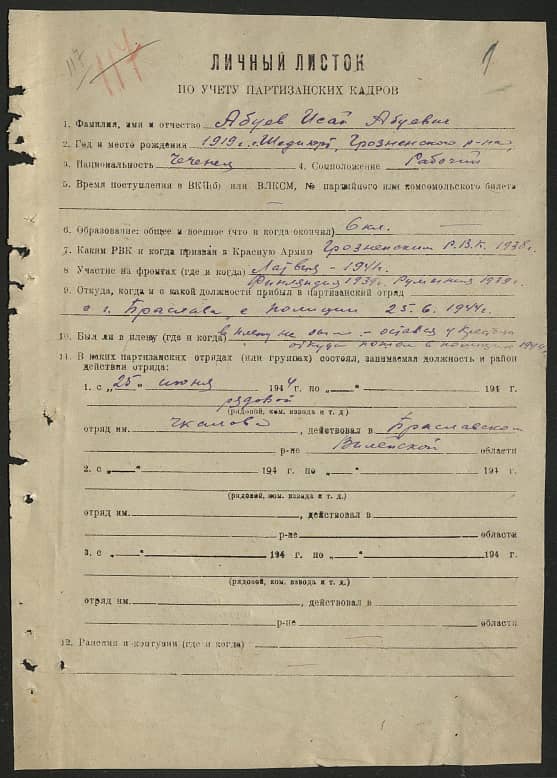 117
117
1
ЛИЧНЫЙ ЛИСТОК
ПО УЧЕТУ ПАРТИЗАНСКИХ КАДРОВ
1. Фамилия, имя и отчество Абуев Исай Абуевич
2. Год и место рождения 1919 г. Грозненского р-на
3. Национальность Чеченец 4. Соцположение Рабочий
5. Время поступления в ВКП(б) или ВЛКСМ, № партийного или комсомольского билета
6. Образование: общее и военное (что и когда окончил) 6 кл. —
7. Каким РВК и когда призван в Красную Армию Грозненским Р.В.К. 1938 г.
8 Участие на фронтах (где и когда) Латвия – 1941 г.
Финляндия 1939 г. Румыния 1939 г.
9. Откуда, когда и с какой должности прибыл в партизанский отряд
с г. Браслава, с полиции 25.6.1944 г.
10. Был ли в плену (где и когда) в плену не был – остался у
откуда попал в полицию
11. В каких партизанских отрядах (или группах) состоял, занимаемая должность и район
действия отряда:
1. с „25" июня 1944 г. по „ " 194 г.
рядовой
(рядовой, ком. взвода и т. д.)
отряд им. Чкалова, действовал в Браславском
р-не Вилейской области
2. с „ " 194 г. по „ " 194 г.
(рядовой, ком. взвода и т. д.)
отряд им. , действовал в
р-не области
3. с „ " 194 г. по „ " 194 г.
(рядовой, ком. взвода и т. д.)
отряд им. , действовал в
р-не области
12. Ранения и контузии (где и когда) —